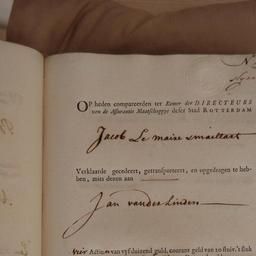 N.
OP heden compareerden ter Kamer der DIRECTEURS
van de Assurantie Maatschappye deser Stad ROTTERDAM
Jacob Le maire smaeltart
Verklaarde gecedeert, getransporteert, en opgedragen te heb-
ben, mits dezen aan
Jan vander linden
vier Actien van vyf duizend guld. courant geld van 20 stuiv. 't stuk